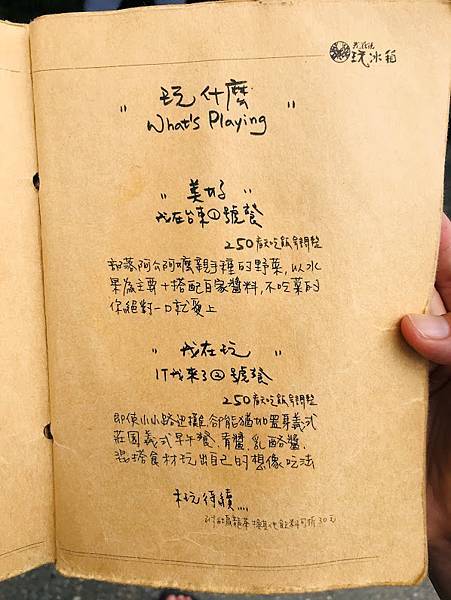 玩冰箱
"玩什麼"
What's Playing
"美好"
我在台東①號餐
250
部落阿公阿嬤親手種的野菜,以水
果為主要+搭配自家醬料,不吃菜的
你絕對一口就愛上
"我在玩"
IT找來了②號餐
250
即使小小路迢 卻能猶如置身義式
莊園義式早午餐,青醬、乳酪醬、
混搭食材玩出自己的想像吃法
未玩待續....
30元